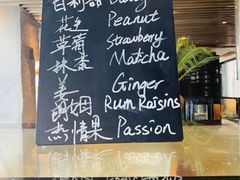 百利甜 Baily
花生 Peanut
草莓 Strawberry
抹茶 Matcha
姜 Ginger
朗姆 Rum Raisins
热情果 Passion